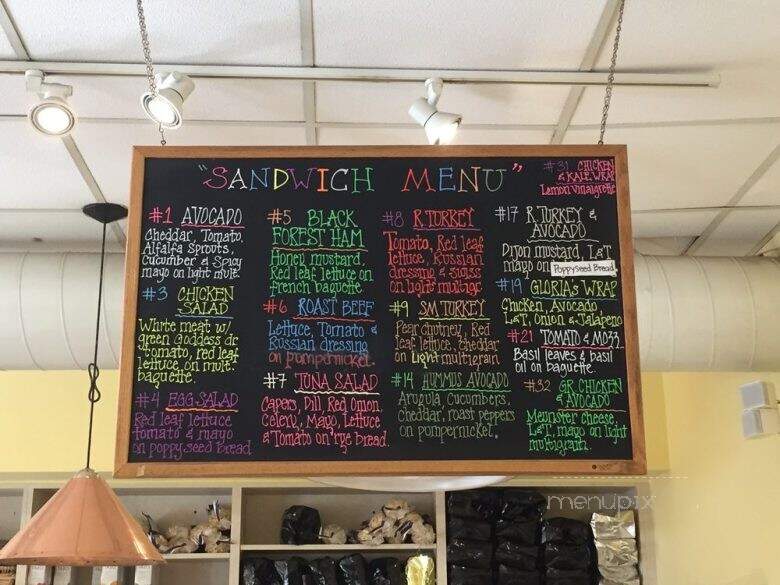 "SANDWICH MENU"
#1 AVOCADO
Cheddar, Tomato,
Alfalfa Sprouts,
Cucumber & Spicy
mayo on light mult.
#3 CHICKEN
SALAD
White meat w/
green goddess dr
tomato, red leaf
lettuce on mult.
baguette.
#4 EGG SALAD
Red leaf lettuce
tomato & mayo
on poppy seed bread
#5 BLACK
FOREST HAM
Honey mustard,
Red leaf lettuce on
french baguette
#6 ROAST BEEF
Lettuce, Tomato &
Russian dressing
on pumpernickel.
#7 TUNA SALAD
Capers, Dill, Red Onion,
Celery, Mayo, Lettuce
& Tomato on rye bread.
#8 R.TURKEY
Tomato, Red leaf
lettuce, Russian
dressing & swiss
on light multigr.
#9 SM TURKEY
Pear chutney, Red
leaf lettuce, cheddar
on light multigrain
#14 HUMMUS AVOCADO
Arugula, cucumbers,
cheddar, roast peppers
on pumpernickel.
#31 CHICKEN
& KALE WRAP
Lemon vinaigrette
#17 R.TURKEY &
AVOCADO
Dijon mustard, L&T
mayo on Poppyseed Bread
#19 GLORIA'S WRAP
Chicken, Avocado,
L&T, Onion & Jalapeño
#21 TOMATO & MOZZ
Basil leaves & basil
oil on baguette.
#32 GR.CHICKEN
& AVOCADO
Meunster cheese,
L&T, mayo on light
multigrain.
menupix